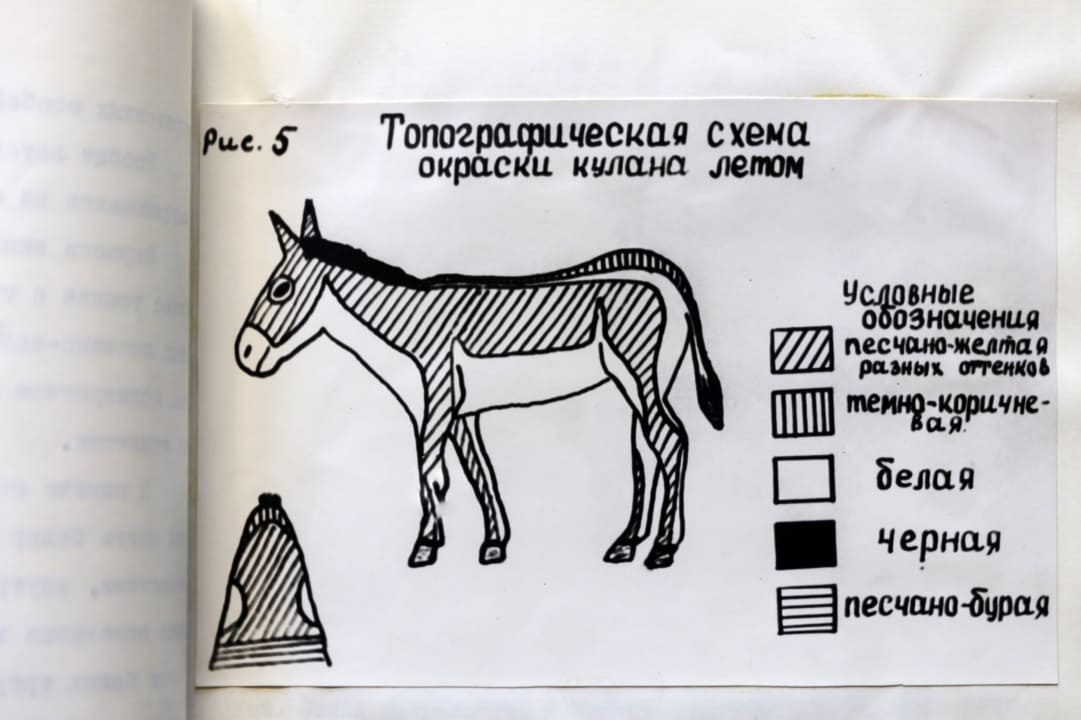 Рис. 5
Топографическая схема
окраски кулана летом
Условные
обозначения
песчано-желтая
разных оттенков
темно-коричне-
вая.
белая
черная
песчано-бурая